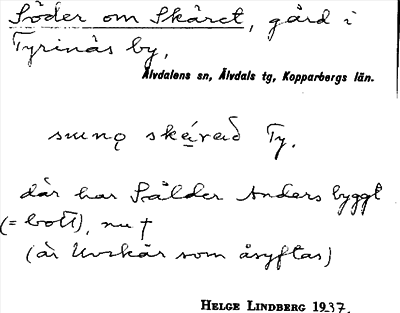 Söder om Skäret, gård i
Tyrinäs by,
Älvdalens sn, Älvdals tg, Kopparbergs län.
Ty.
där har Sälder Anders byggt
(= bott), nu †
(är Uvskär som åsyftas)
HELGE LINDBERG 1937.